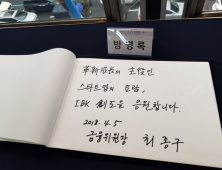 방명록
革新成長의 主役인
스타트업의 요람,
IBK 創工을 응원합니다.
2018. 4. 5
금융위원장 최종구